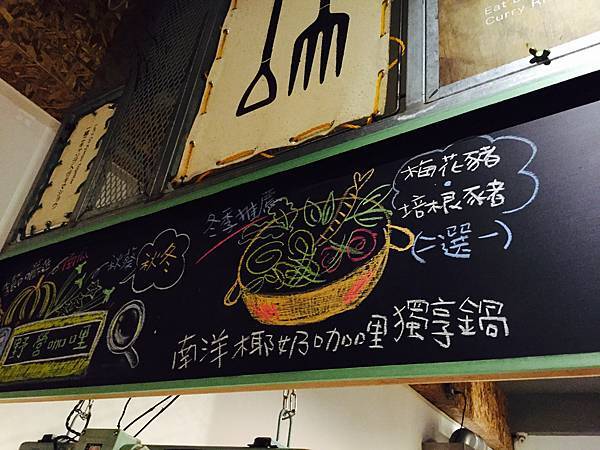 Eat
Curry Ri
冬季推薦
梅花豬
培根豬
(二選一)
秋葵
秋冬
野營咖哩
南洋椰奶咖哩獨享鍋